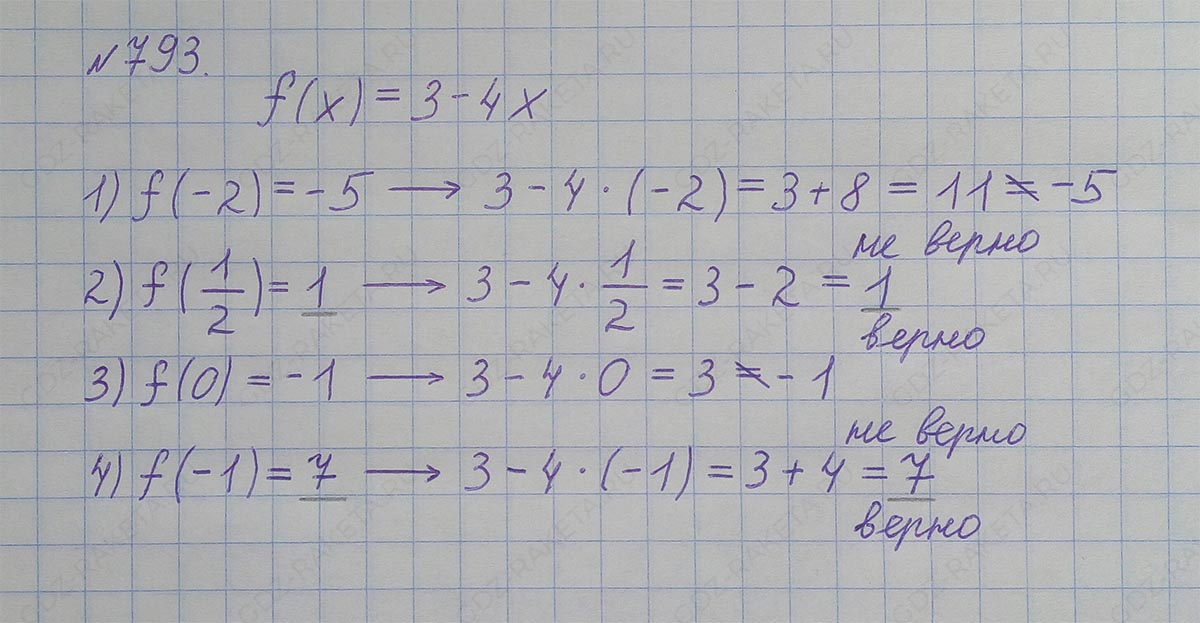 №793.
f(x) = 3 - 4x
1) f(-2) = -5 ⟶ 3 - 4 · (-2) = 3 + 8 = 11 ≠ -5
не верно
2) f(1/2) = 1 ⟶ 3 - 4 · 1/2 = 3 - 2 = 1
верно
3) f(0) = -1 ⟶ 3 - 4 · 0 = 3 ≠ -1
не верно
4) f(-1) = 7 ⟶ 3 - 4 · (-1) = 3 + 4 = 7
верно
GDZ-RAKETA.RU